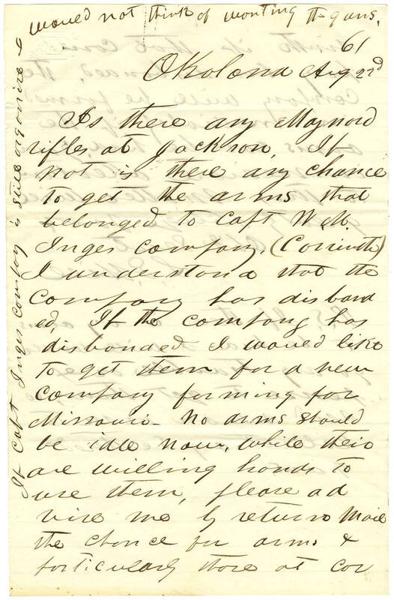 would not think of wanting the guns.
61
Okolona Aug 22d
Is there any Maynard
rifles at Jackson, If
not is there any chance
to get the arms that
belonged to Capt W M
Inges company, (Corinth)
I understand that the
Company has disband
ed, If the company has
disbanded I would like
to get them for a new
Company forming for
Missouri. No arms should
be idle now, while their
are willing hands to
use them, please ad
vise me by return Mail
the chance for arms &
particularly those at Cor
If Capt Inges company is still organized I